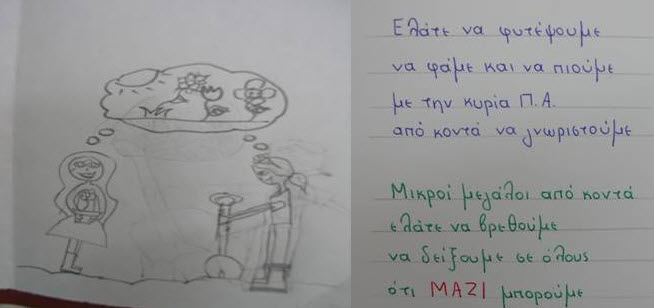 Ελάτε να φυτέψουμε
να φάμε και να πιούμε
με την κυρία Π.Α.
από κοντά να γνωριστούμε
Μικροί μεγάλοι από κοντά
ελάτε να βρεθούμε
να δείξουμε σε όλους
ότι ΜΑΖΙ μπορούμε